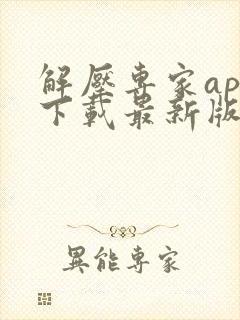 解壓專家ap
下載最新版
異能專家